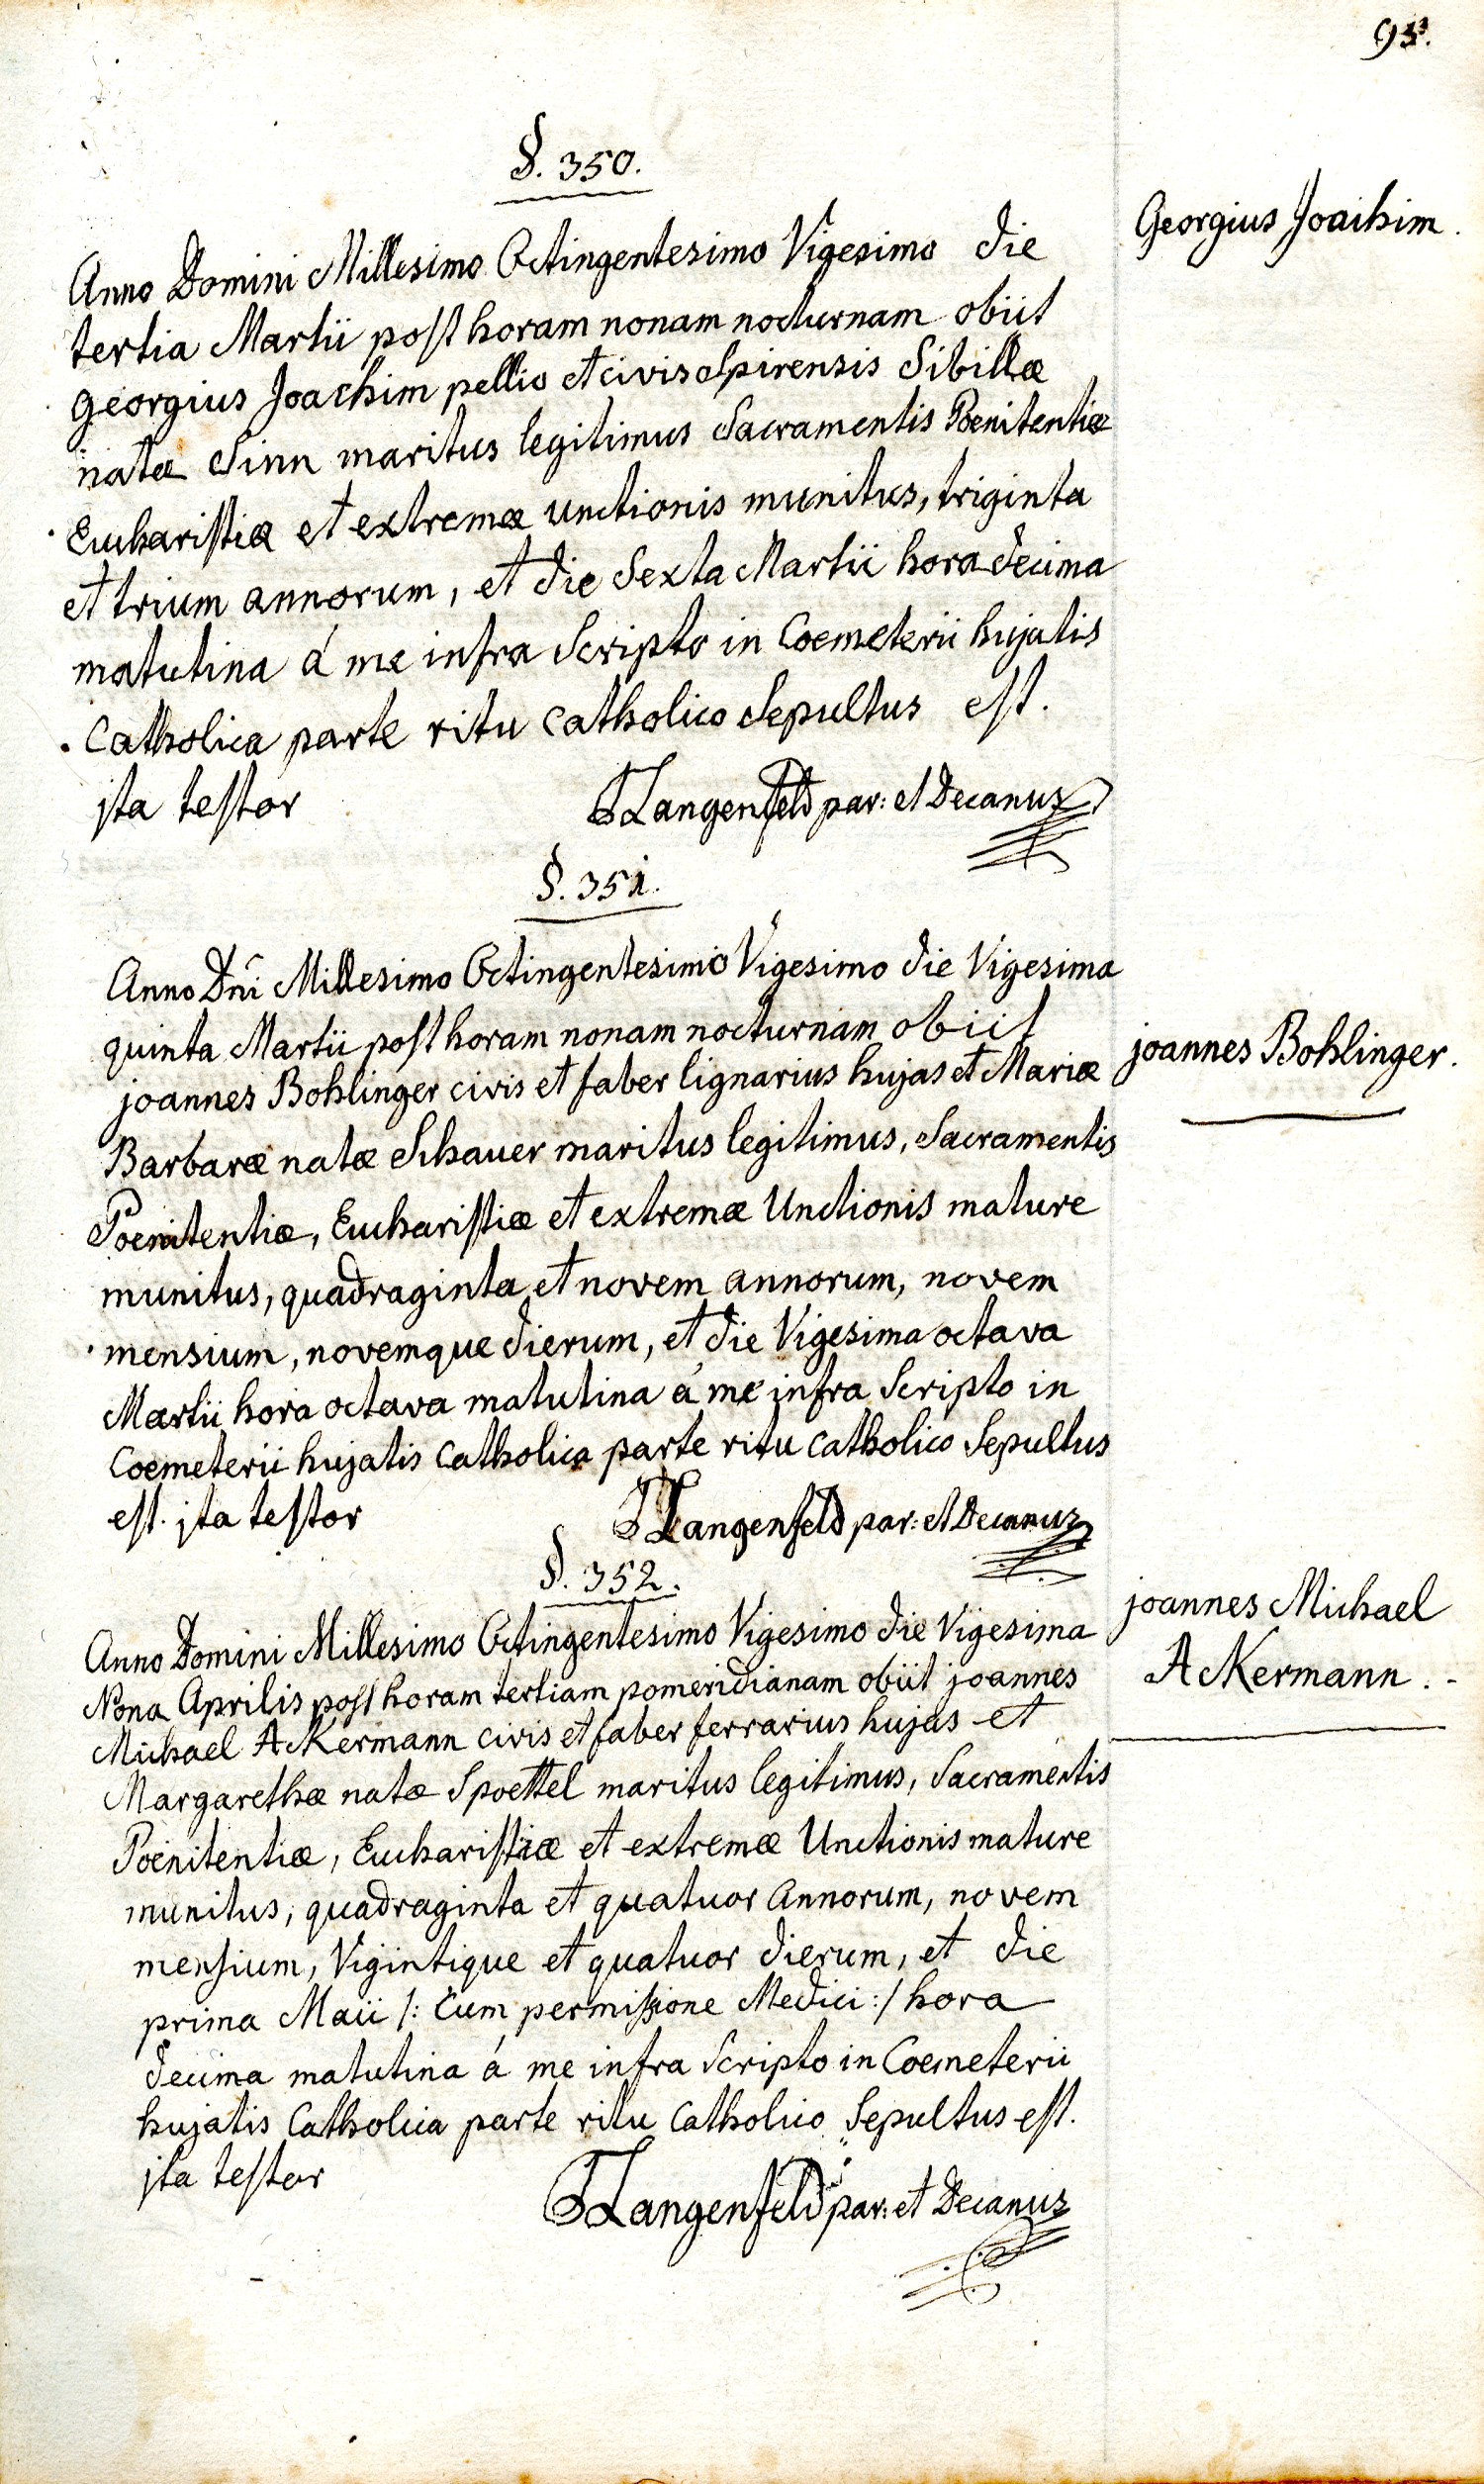 §. 350.
Georgius Joachim.
Anno Domini Millesimo Octingentesimo Vigesimo die
tertia Martii post horam nonam nocturnam obiit
georgius Joachim pellio et civis spirensis Sibillæ
natæ Sinn maritus legitimus Sacramentis Poenitentiæ
Eucharistiæ et extremæ unctionis munitus, triginta
et trium annorum, et die Sexta Martii hora decima
matutina á me infra Scripto in Coemeterii hujatis
Catholica parte ritu catholico Sepultus est.
jta testor
Langenfeld par: et Decanus
§. 351.
Anno Dni Millesimo Octingentesimo Vigesimo die Vigesima
quinta Martii post horam nonam nocturnam obiit
joannes Bohlinger.
joannes Bohlinger civis et faber lignarius hujas et Mariæ
Barbaræ natæ Schauer maritus legitimus, Sacramentis
Poenitentiæ, Eucharistiæ et extremæ Unctionis mature
munitus, quadraginta et novem annorum, novem
mensium, novemque dierum, et die Vigesima octava
Martii hora octava matutina á me infra Scripto in
Coemeterii hujatis catholica parte ritu catholico Sepultus
est. jta testor
Langenfeld par: et Decanus
§. 352.
joannes Michael
AcKermann.
Anno Domini Millesimo Octingentesimo Vigesimo die Vigesima
Nona Aprilis post horam tertiam pomeridianam obiit joannes
Michael AcKermann civis et faber ferrarius hujas et
Margarethæ natæ Spoettel maritus legitimus, Sacramentis
Poenitentiæ, Eucharistiæ et extremæ Unctionis mature
munitus, quadraginta et quatuor annorum, novem
mensium, Vigintique et quatuor dierum, et die
prima Maii /: Cum permissione Medici :/ hora
decima matutina á me infra Scripto in Coemeterii
hujatis Catholica parte ritu Catholico Sepultus est.
jta testor
Langenfeld par: et Decanus